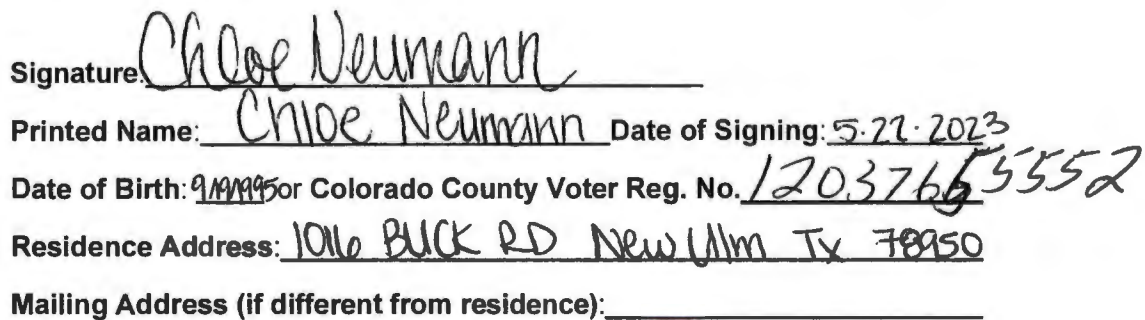 Signature: Chloe Neumann
Printed Name: Chloe Neumann Date of Signing: 5.22.2023
Date of Birth: 9/19/1995 or Colorado County Voter Reg. No.
Residence Address: 1016 BUCK RD New Ulm Tx 78950
Mailing Address (if different from residence):